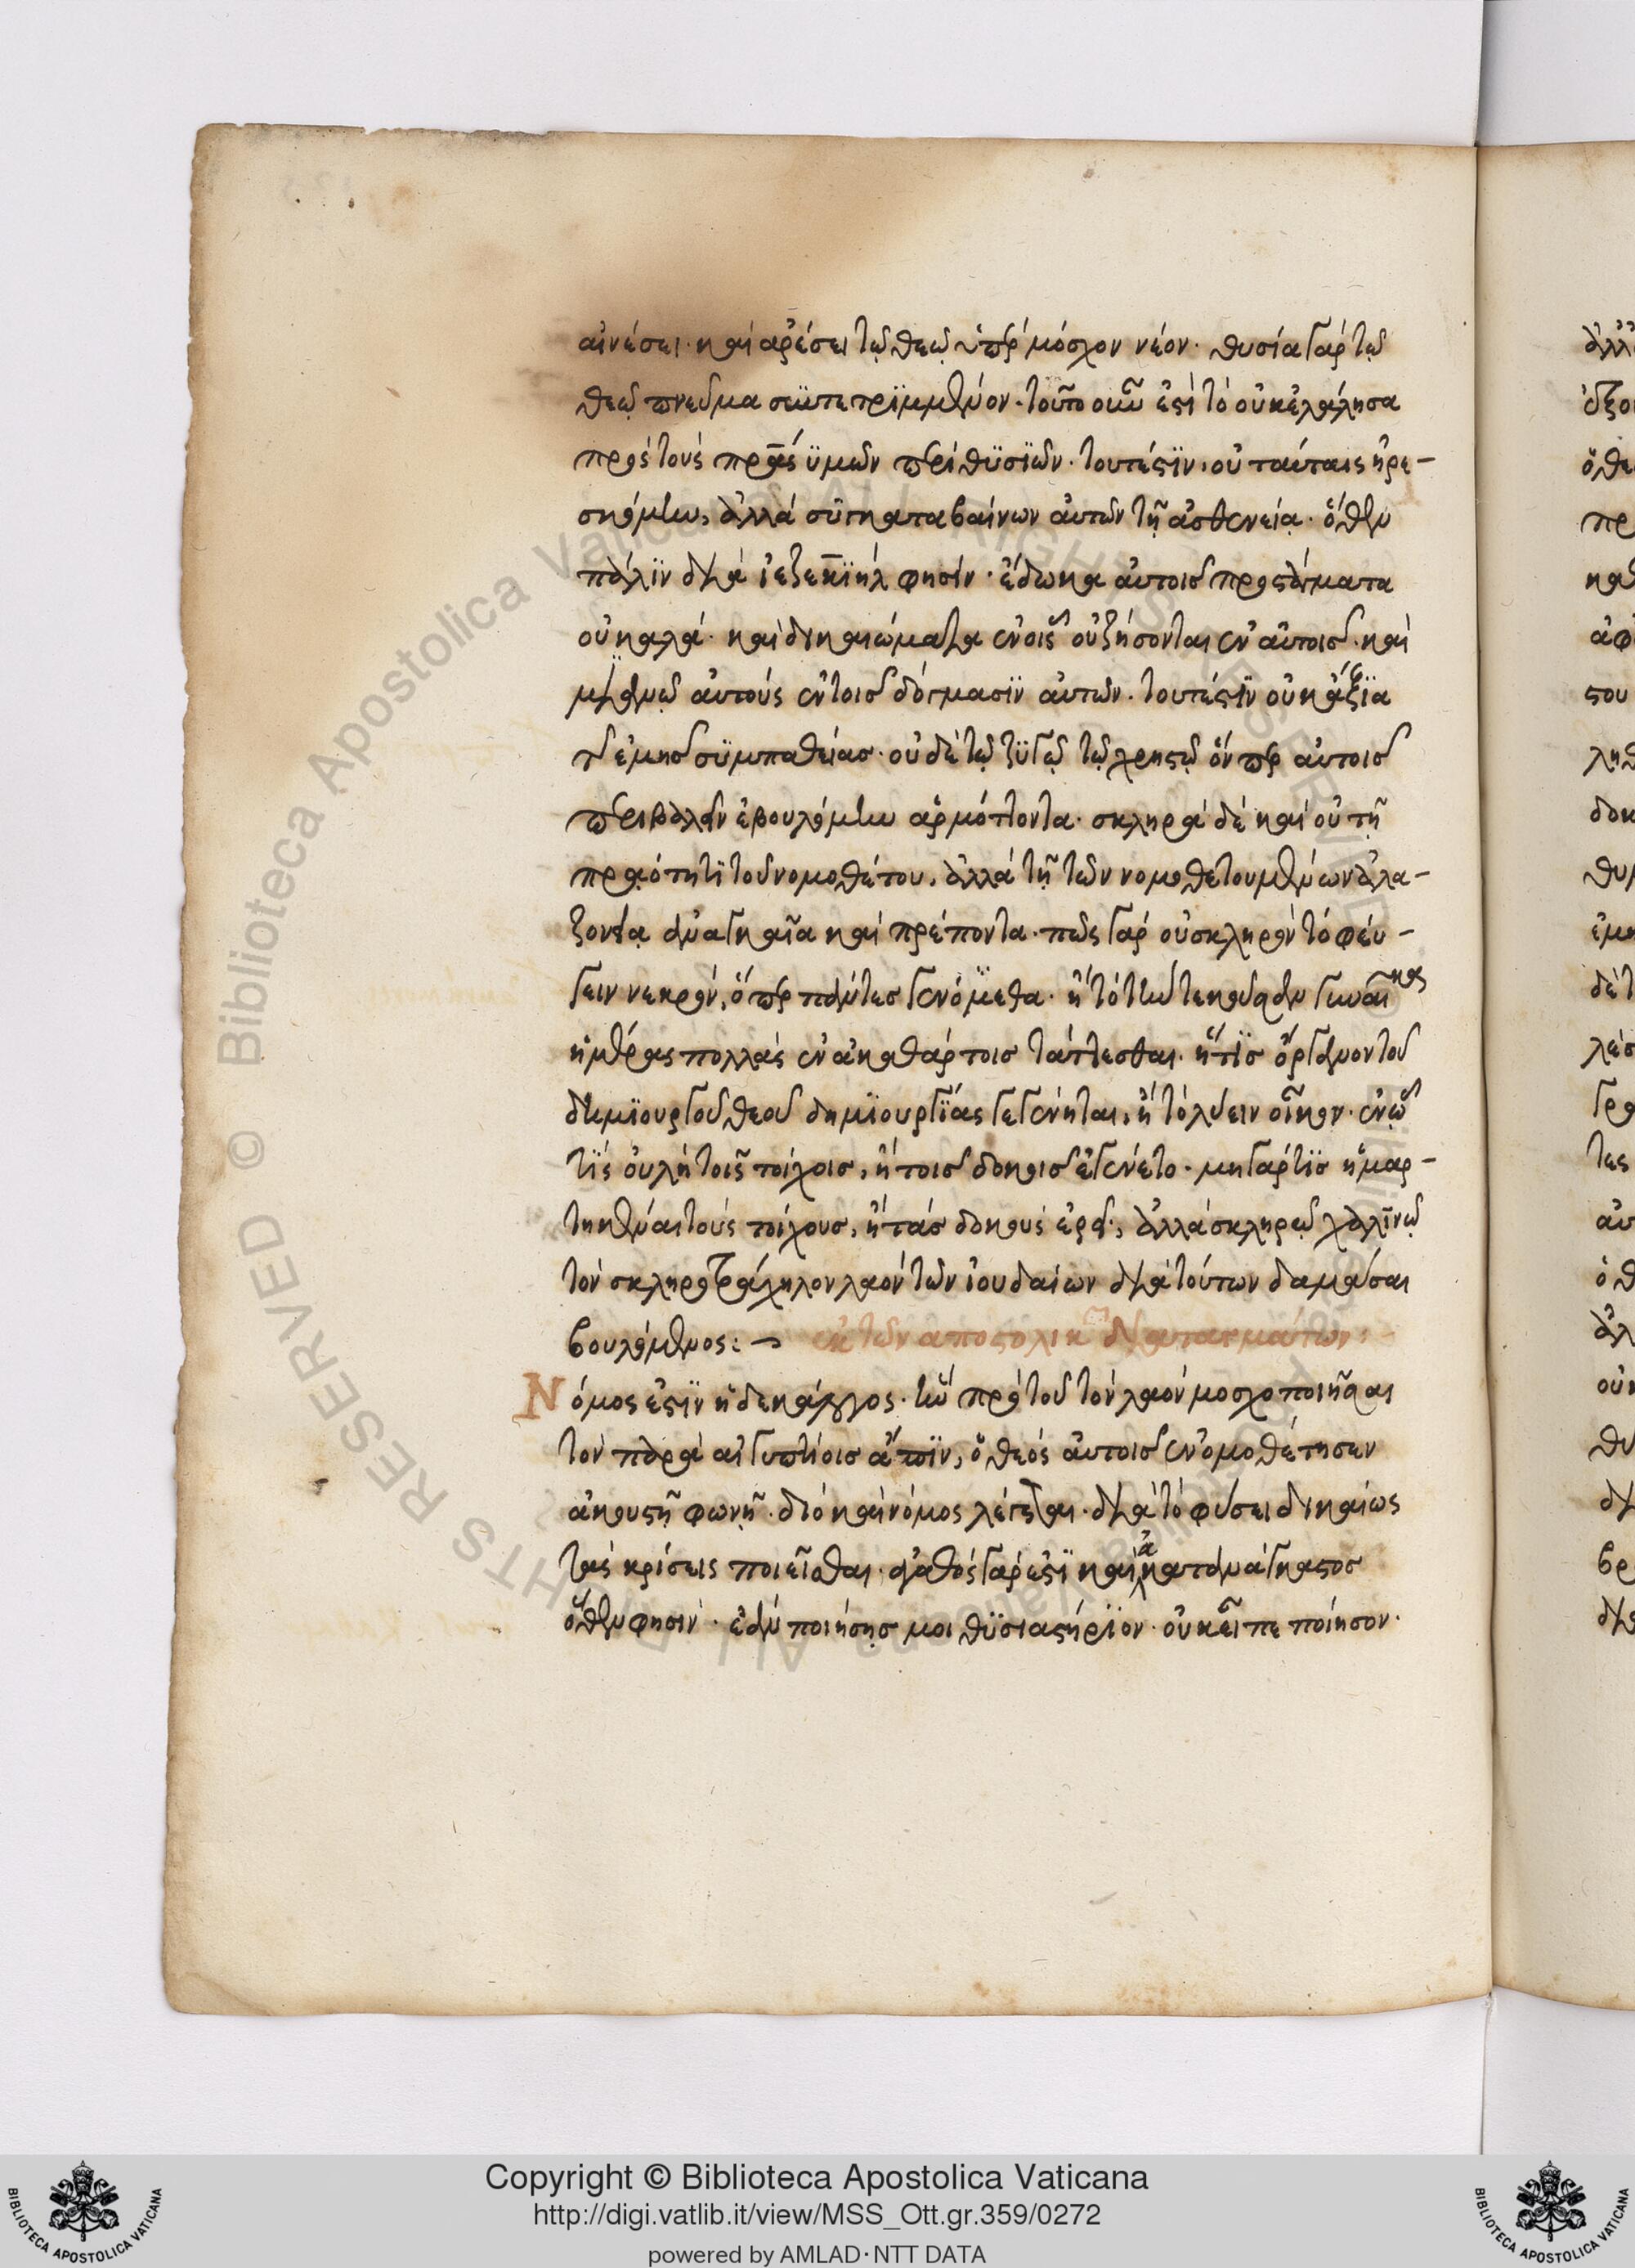 αἰνέσει· καὶ ἀρέσει τῷ θεῷ ὑπὲρ μόσχον νέον· θυσία γὰρ τῷ
θεῷ πνεῦμα συντετριμμένον· τοῦτο οὖν ἐστὶ τὸ οὐκ ἐλάλησα
πρὸς τοὺς πρ̅ας ὑμῶν περὶ θυσιῶν· τουτέστιν, οὐ ταύταις ἠρε-
σκόμην, ἀλλὰ συγκαταβαίνων αὐτῶν τῇ ἀσθενείᾳ· ὅθεν
πάλιν διὰ ἰεζεκιὴλ φησίν· ἔδωκα αὐτοῖς προστάγματα
οὐ καλά· καὶ δικαιώματα ἐν οἷς οὐ ζήσονται ἐν αὐτοῖς· καὶ
μιανῶ αὐτοὺς ἐν τοῖς δόγμασιν αὐτῶν· τουτέστιν οὐκ ἄξια
τῆς ἐμῆς συμπαθείας· οὐδὲ τῷ ζυγῷ τῷ χρηστῷ ὅνπερ αὐτοῖς
περιβαλεῖν ἐβουλόμην ἁρμόττοντα· σκληρὰ δὲ καὶ οὐ τῇ
πραότητι τοῦ νομοθέτου, ἀλλὰ τῇ τῶν νομοθετουμένων ἀλα-
ζονείᾳ ἀναγκαῖα καὶ πρέποντα· πῶς γὰρ οὐ σκληρὸν τὸ φεύ-
γειν νεκρόν, ὅπερ πάντες γενόμεθα· ἢ τὸ τὴν τεκοῦσαν γυναῖκα
ἡμέρας πολλὰς ἐν ἀκαθάρτοις τάττεσθαι· ἥτις ὄργανον τοῦ
δημιουργοῦ θεοῦ δημιουργίας γεγένηται, ἢ τὸ λύειν οἶκον· ἐν ᾧ
τὶς οὐλὴ τοῖς τοίχοις, ἢ τοῖς δοκοῖς ἐγένετο· μὴ γάρ τις ἡμαρ-
τηκέναι τοὺς τοίχους, ἢ τὰς δοκοὺς ἐρεῖ, ἀλλὰ σκληρῷ χαλινῷ
τὸν σκληροτράχηλον λαὸν τῶν ἰουδαίων διὰ τούτων δαμάσαι
βουλόμενος:- ἐκ τῶν αποστολικῶν διαταγμάτων:-
Νόμος ἐστὶν ἡ δεκάλογος· ἣν πρὸ τοῦ τὸν λαὸν μοσχοποιῆσαι
τὸν παρὰ αἰγυπτίοις ἄπιν, ὁ θεὸς αὐτοῖς ἐνομοθέτησεν
ἀκουστῇ φωνῇ· διὸ καὶ νόμος λέγεται· διὰ τὸ φύσει δικαίως
τὰς κρίσεις ποιεῖσθαι· ἀγαθὸς γάρ ἐστι καὶ ἀκατανάγκαστος
ὅθεν φησίν· ἐὰν ποιήσῃς μοι θυσιαστήριον· οὐκ εἶπε ποίησον·
Copyright © Biblioteca Apostolica Vaticana
http://digi.vatlib.it/view/MSS_Ott.gr.359/0272
powered by AMLAD·NTT DATA